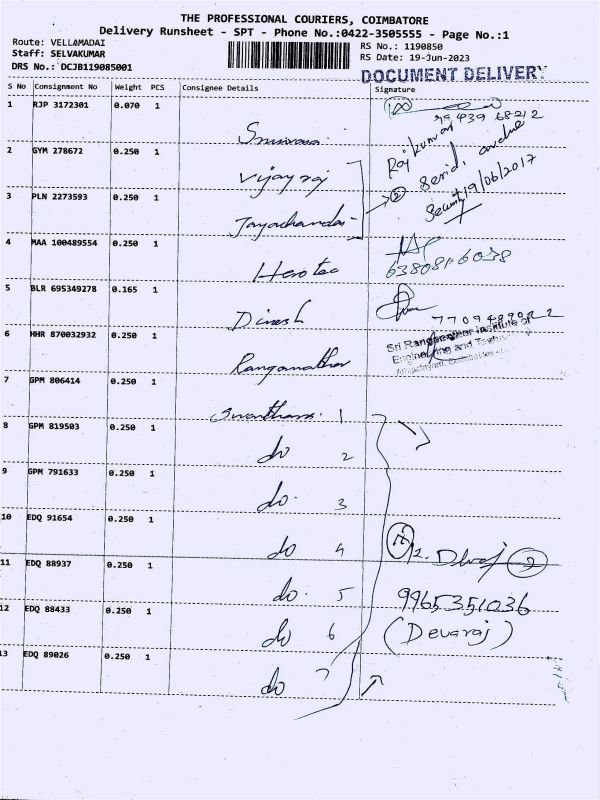 THE PROFESSIONAL COURIERS, COIMBATORE
Delivery Runsheet - SPT - Phone No.:0422-3505555 - Page No.:1
Route: VELLAMADAI
Staff: SELVAKUMAR
DRS No.: DCJB119085001
RS No.: 1190850
RS Date: 19-Jun-2023
DOCUMENT DELIVERY
S No Consignment No Weight PCS Consignee Details Signature
1 RJP 3172301 0.070 1
99439 68212
2 GYM 278672 0.250 1 Vijayraj Rajkumar
Security 19/06/2017
3 PLN 2273593 0.250 1 Jayachandar 2
4 MAA 100489554 0.250 1 Herotec 6380816038
5 BLR 695349278 0.165 1 Dinesh
6 HHR 870032932 0.250 1 Ranganathar Sri Ranganathar Institute of
Engineering and
7 GPM 806414 0.250 1 1
8 GPM 819503 0.250 1 do 2
9 GPM 791633 0.250 1 do. 3
10 EDQ 91654 0.250 1 do 4
11 EDQ 88937 0.250 1 do. 5 9965351036
12 EDQ 88433 0.250 1 do 6 (Devaraj)
13 EDQ 89026 0.250 1 do 7